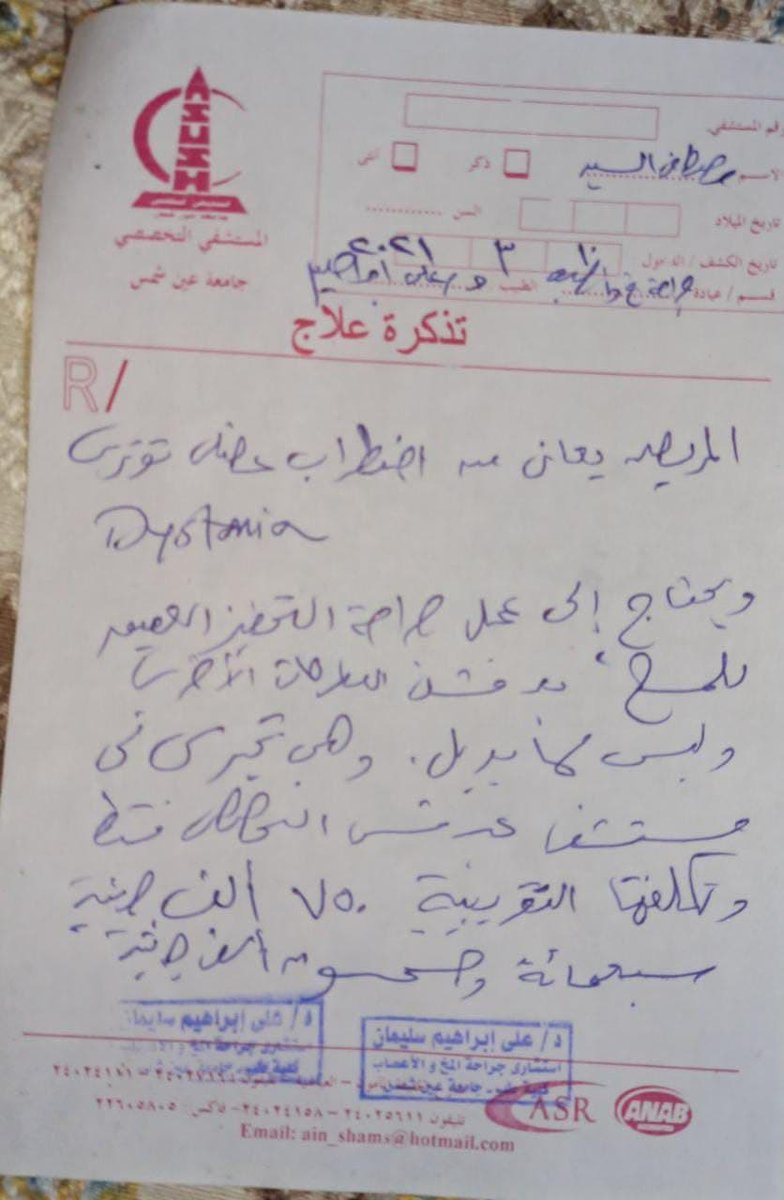 ASUSH
المستشفى التخصصي
جامعة عين شمس
رقم المستشفى
الاسم مصطفى السيد
ذكر أنثى
تاريخ الميلاد السن
تاريخ الكشف / الدخول ١٠ ٣ ٢٠٢١
قسم / عيادة جراحة الطبيب د. على
تذكرة علاج
R/
المريض يعانى من اضطراب حركى توترى
Dystonia
ويحتاج إلى عمل جراحة التحفيز العميق
للمخ بعد فشل العلاجات الأخرى
وليس لها بديل. وهى تجرى فى
مستشفى عين شمس التخصصى فقط
وتكلفتها التقريبية ٧٥٠ ألف جنيه
سبعمائة وخمسون ألف جنيه
د/ على إبراهيم سليمان
استشارى جراحة المخ والأعصاب
كلية طب - جامعة عين شمس
د/ على إبراهيم سليمان
استشارى جراحة المخ والأعصاب
تليفون ٢٤٠٢٥٦١١ - ٢٤٠٢٤١٥٨ - فاكس: ٢٢٦٠٥٨٠٥
Email: ain_shams@hotmail.com
ASR
ANAB